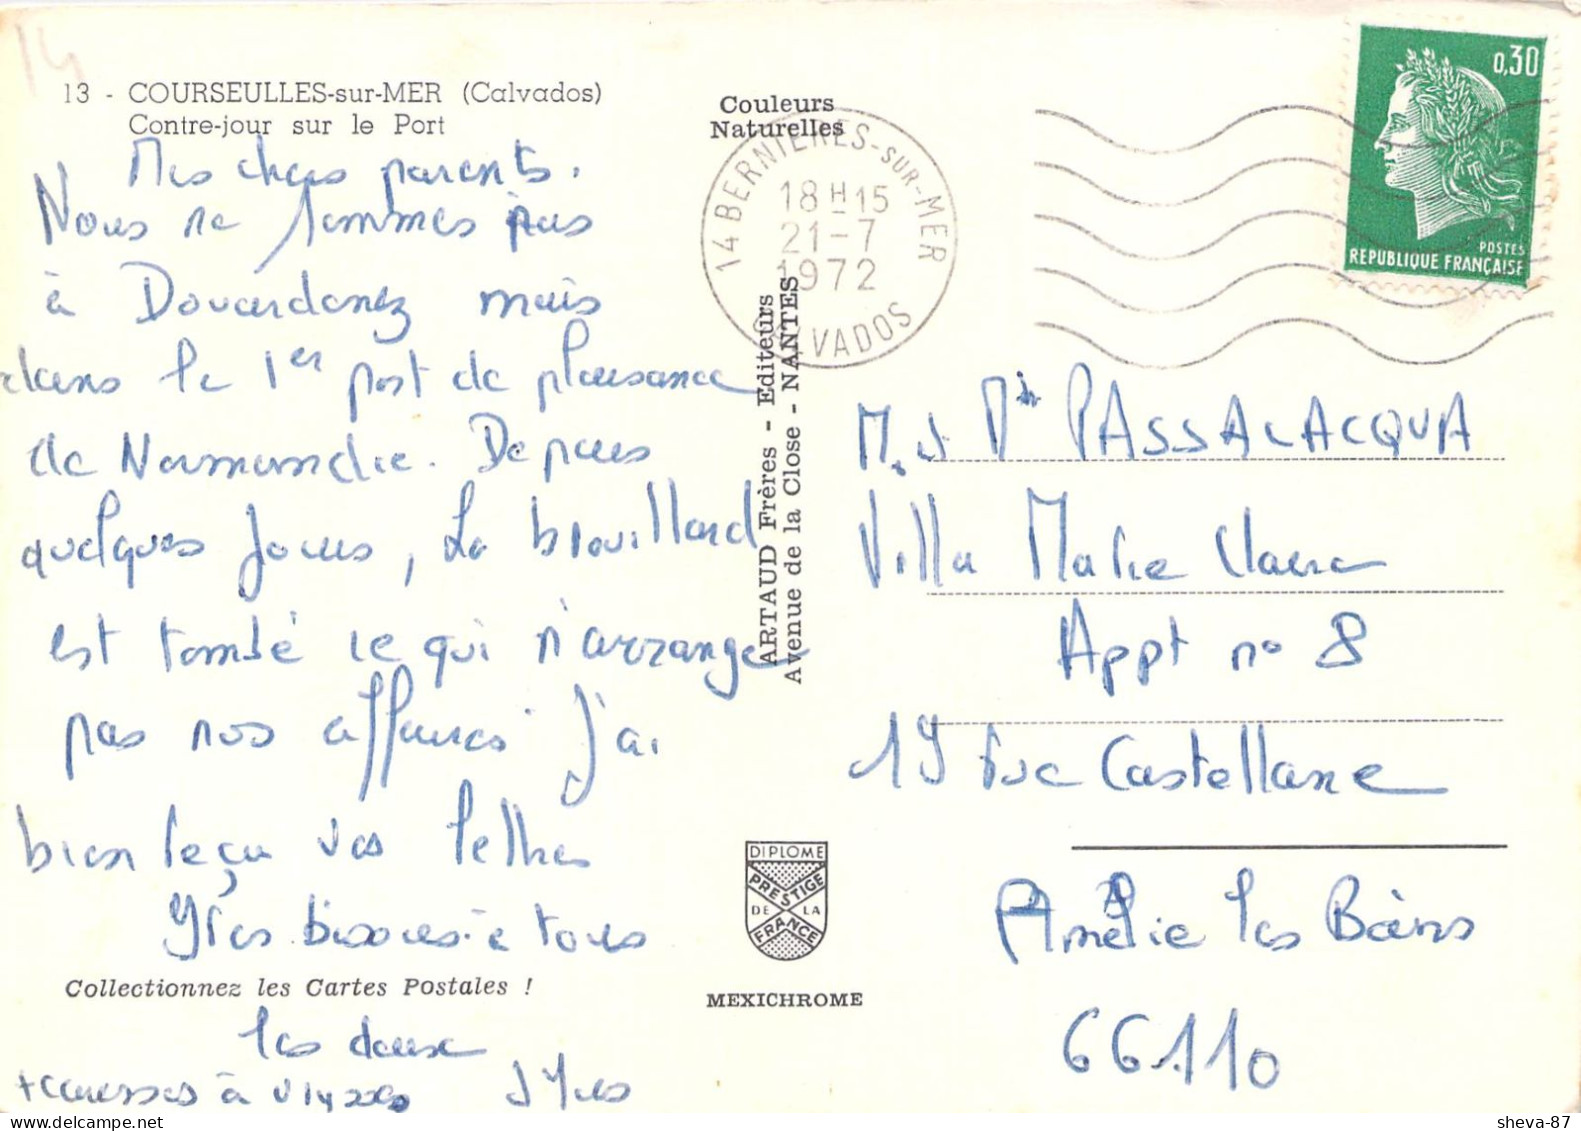 14
13 - COURSEULLES-sur-MER (Calvados)
Contre-jour sur le Port
Mes chers parents.
Nous ne sommes pas
à Douardenez mais
dans le 1er port de plaisance
de Normandie. Depuis
quelques jours, le brouillard
est tombé ce qui n'arrange
pas nos affaires j'ai
bien reçu vos lettres
Gros bisous à tous
Collectionnez les Cartes Postales !
les deux
+ caresses à
Couleurs
Naturelles
14 BERNIERES-SUR-MER
18H15
21-7
1972
CALVADOS
ARTAUD Frères - Editeurs
Avenue de la Close - NANTES
DIPLOME
PRESTIGE
DE LA
FRANCE
MEXICHROME
0,30
POSTES
REPUBLIQUE FRANÇAISE
PASSALACQUA
Villa Marie Claire
Appt n° 8
19 rue Castellane
Amélie les Bains
66110
sheva-87